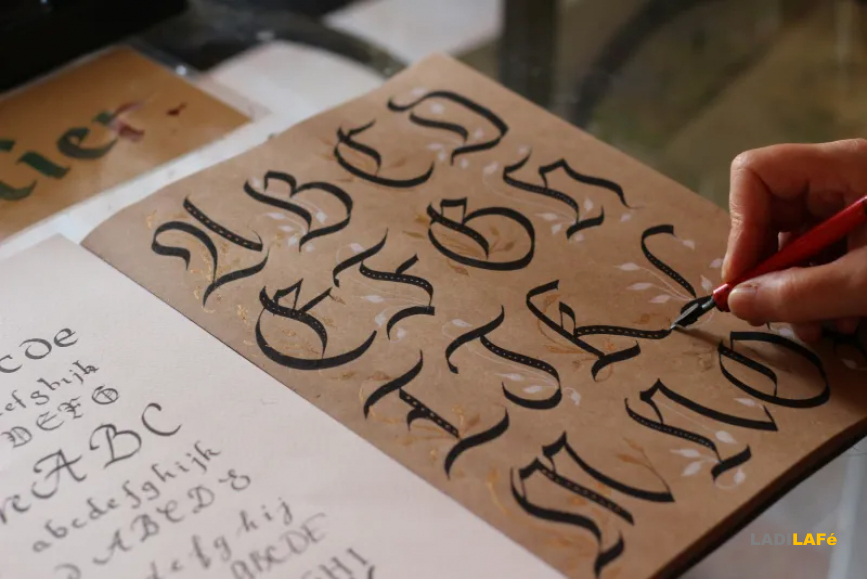 lier
A B C D
E F G H
I J K L
M N O
C D e
efghijk
DEFG
ABC
abcdefghijk
ABCD
efghij
ABCDE
HI
LADILAFé